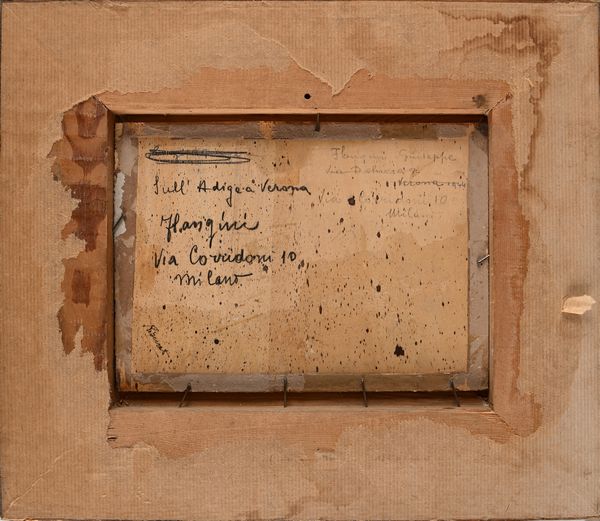 Sull' Adige à Verona
Flangini
Via Corridoni 10
Milano
Flangini Giuseppe
Via
Verona 1944
Via Corridoni 10
Milano